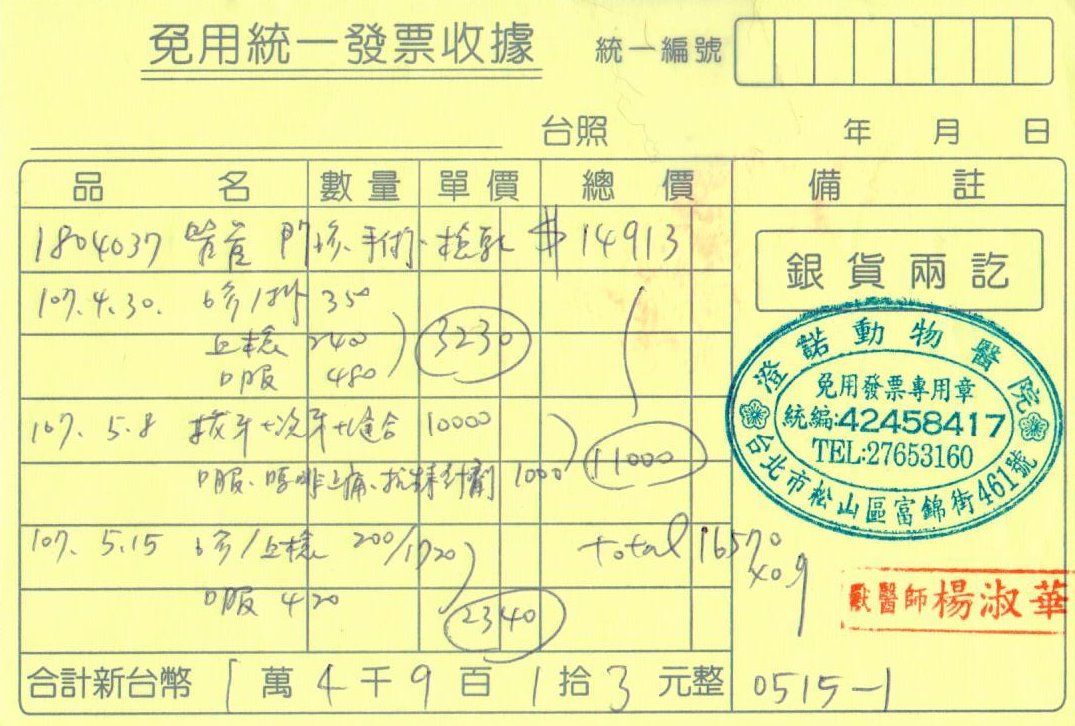 免用統一發票收據 統一編號
台照 年 月 日
品名 數量 單價 總價 備註
1804037 門診、手術、檢驗 $14913
銀貨兩訖
107.4.30. 診/掛 350
血檢 240
3230
口服 480
107.5.8 拔牙+洗牙+縫合 10000
11000
口服、嗎啡止痛、抗生素針劑 1000
107.5.15 診/血檢 200/1720
total 16570
×0.9
口服 420
2340
合計新台幣 1萬4千9百1拾3元整
0515-1
澄諾動物醫院
免用發票專用章
統編:42458417
TEL:27653160
台北市松山區富錦街461號
獸醫師楊淑華